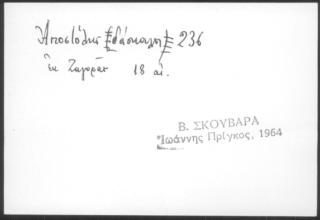 Ἀποστόλης (δάσκαλος) 236
ἐκ Ζαγορᾶς 18 αἰ.
Β. ΣΚΟΥΒΑΡΑ
Ἰωάννης Πρίγκος, 1964